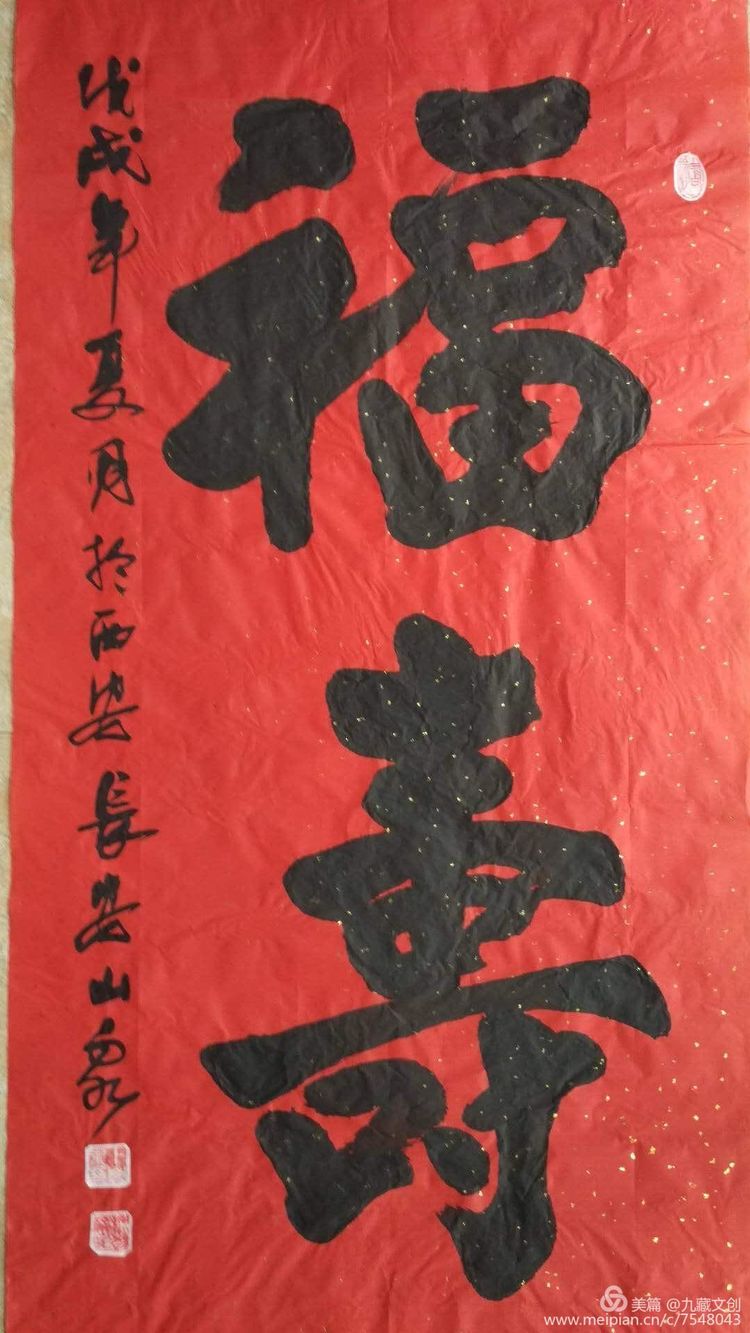 福壽
戊戌年夏月於西安長安山泉
美篇 @九藏文创
www.meipian.cn/c/7548043